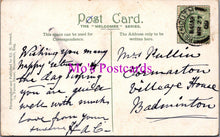 Post Card.
THE "WELCOME" SERIES.
This space can be used for
Correspondence.
The Address only to be
written here.
Wishing you many
happy returns of
the day hoping
you are quite
well with much
love from your
Miss Pullin
Village House
Badminton
Mo's Postcards